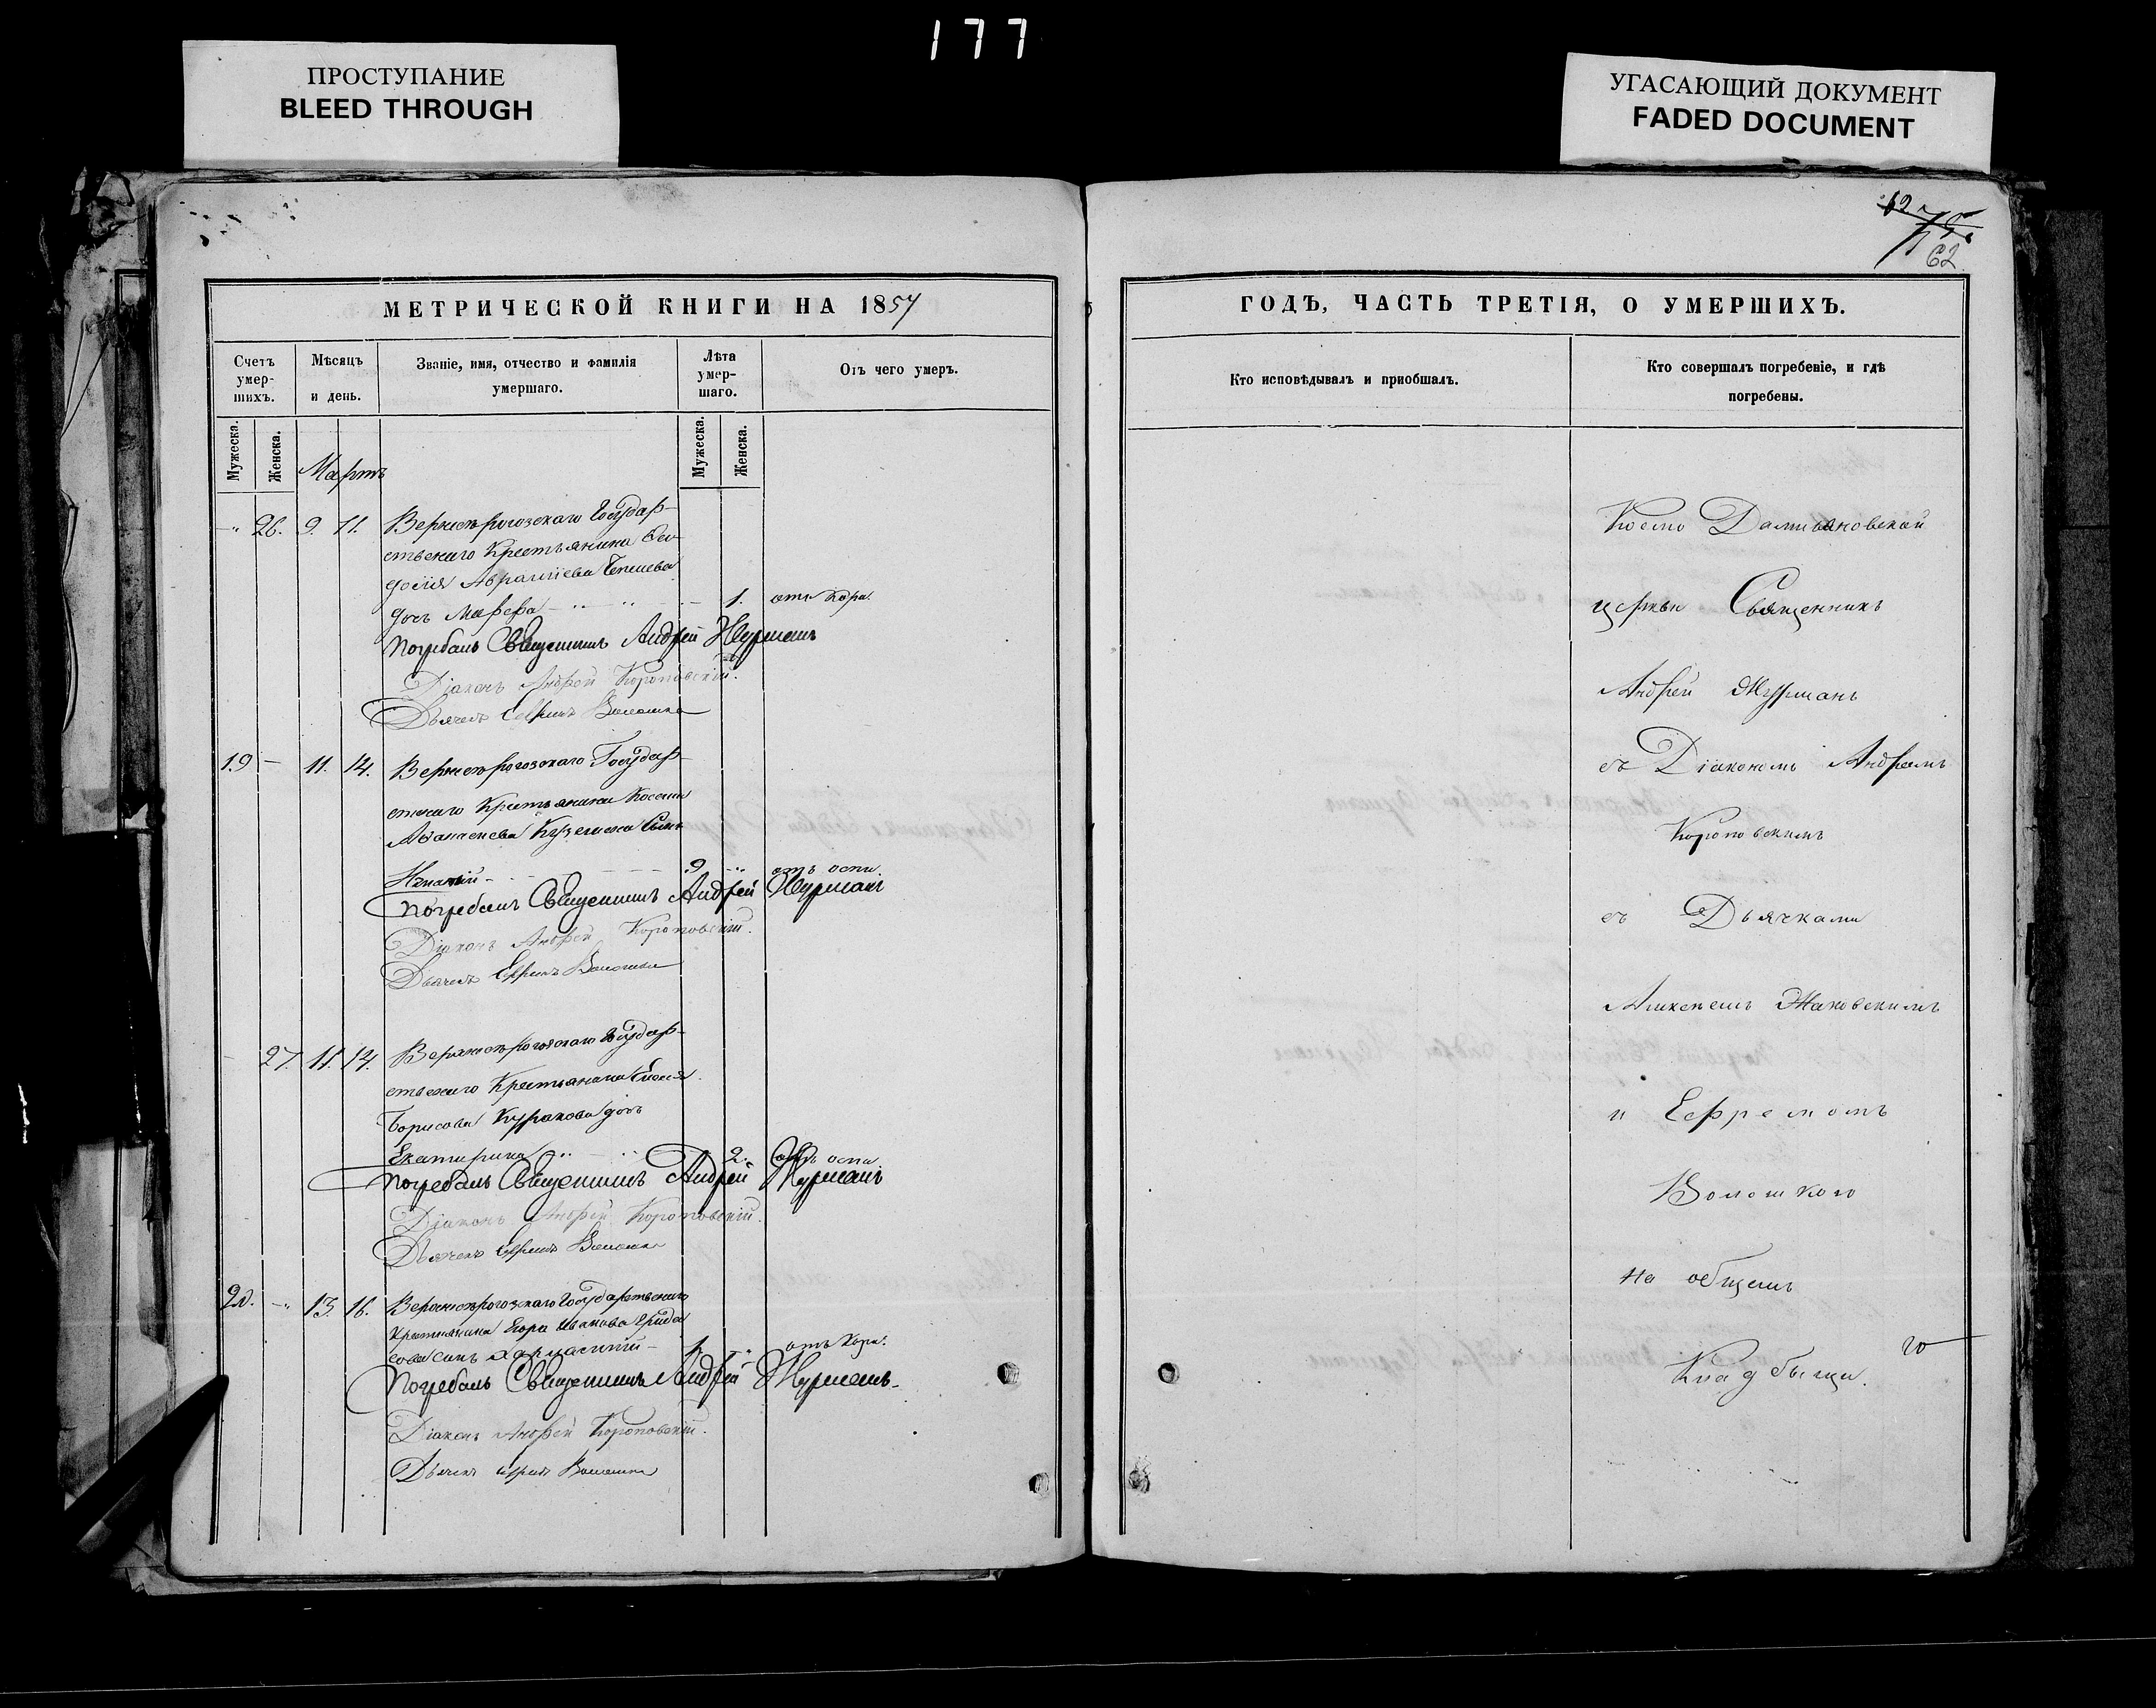 177
ПРОСТУПАНИЕ
BLEED THROUGH
УГАСАЮЩИЙ ДОКУМЕНТ
FADED DOCUMENT
62
МЕТРИЧЕСКОЙ КНИГИ НА 1857
Счетъ умер-шихъ.
Мѣсяцъ и день.
Званіе, имя, отчество и фамилія умершаго.
Лѣта умер-шаго.
Отъ чего умеръ.
Мужеска.
Женска.
Мужеска.
Женска.
Мартъ
26. 9. 11. Верхнерогозскаго Государ-
ственаго Крестьянина
Дочь Марѳа 1. отъ Кори.
Погребалъ Священникъ Андрей Журманъ
Діаконъ Андрей Короповскій.
Дьячекъ Ефремъ Волошка
19 11. 14. Верхнерогозскаго Государ-
Крестьянина
Аѳанасиева сынъ
Игнатій 9 отъ оспы.
Погребалъ Священникъ Андрей Журманъ
Діаконъ Андрей Короповскій.
Дьячекъ Ефремъ Волошка
27. 11. 14. Верхнерогозскаго Государ-
ственаго Крестьянина
Борисова дочь
Екатерина 2. отъ оспы
Погребалъ Священникъ Андрей Журманъ
Діаконъ Андрей Короповскій.
Дьячекъ Ефремъ Волошка
20. 13. 16. Верхнерогозскаго Государственаго
Крестьянина Егора Иванова
сынъ 1. отъ Кори.
Погребалъ Священникъ Андрей Журманъ
Діаконъ Андрей Короповскій.
Дьячекъ Ефремъ Волошка
ГОДЪ, ЧАСТЬ ТРЕТІЯ, О УМЕРШИХЪ.
Кто исповѣдывалъ и приобщалъ.
Кто совершалъ погребеніе, и гдѣ погребены.
Космо Дамиановской
церкви Священникъ
Андрей Журманъ
съ Діакономъ Андреемъ
Короповскимъ
съ Дьячками
Жаковскимъ
и Ефремомъ
Волошкою
на общемъ
Кладбыщи.